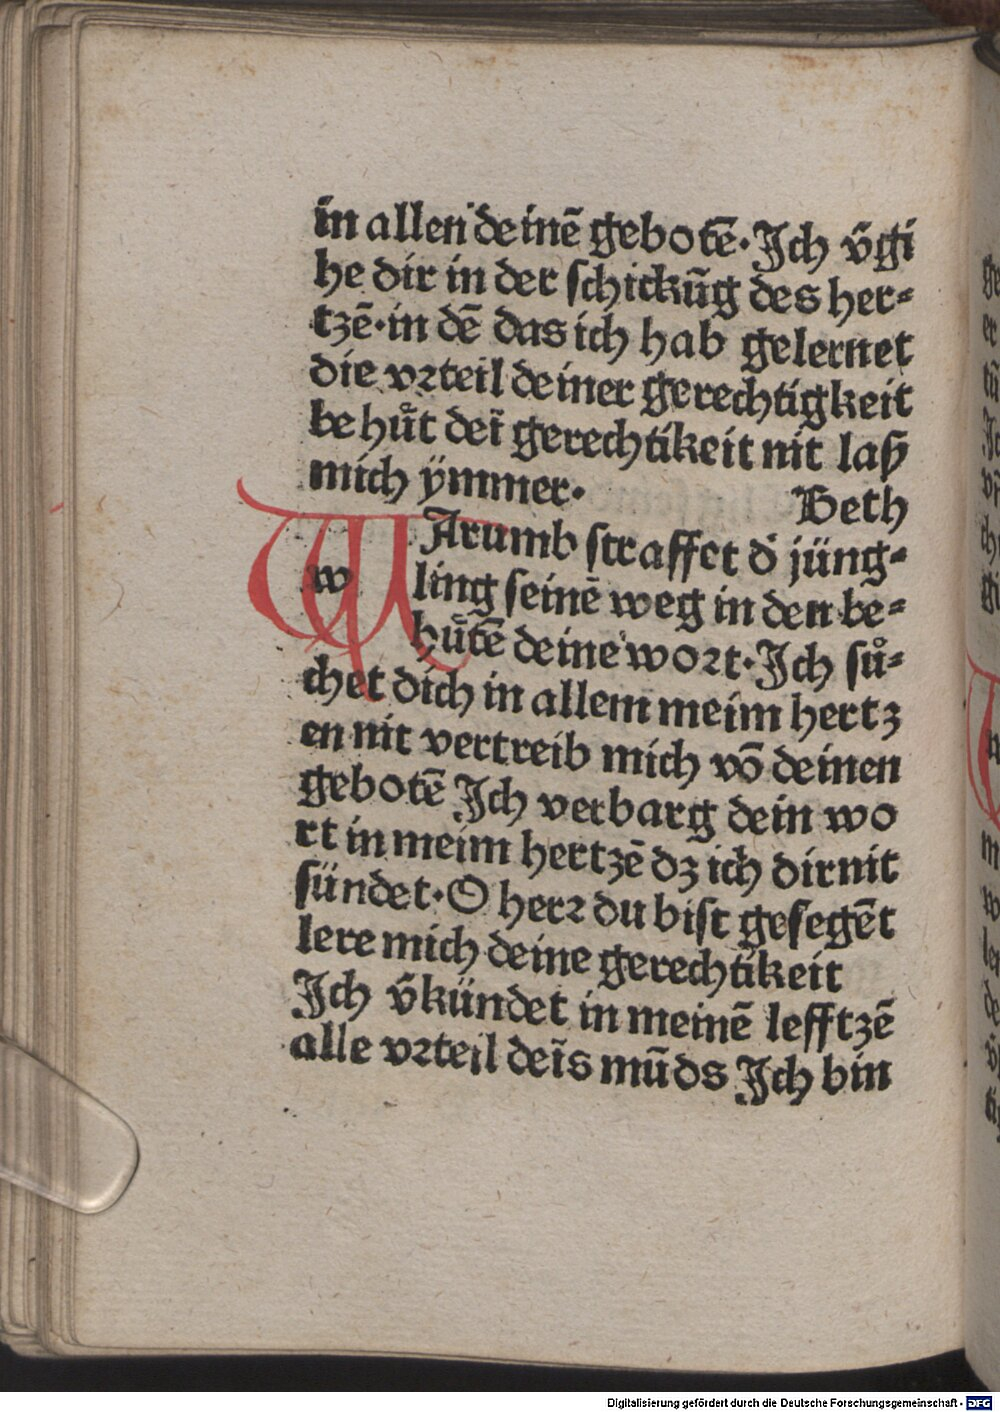 in allen deinē gebotē. Ich v̄gi
he dir in der schickūg des her-
tzē. in dē das ich hab gelernet
die vꝛteil deiner gerechtigkeit
be huͤt deī gerechtikeit nit laß
mich ÿmmer.
Beth
WArumb straffet d̄ jüng-
ling seinē weg in den be-
huͤtē deine woꝛt. Ich suͦ-
chet dich in allem meim hertz
en nit vertreib mich vō deinen
gebotē Ich verbarg dein wo
rt in meim hertzē dz ich dir nit
sündet. O herꝛ du bist gesegēt
lere mich deine gerechtikeit
Ich v̄kündet in meinē lefftzē
alle vꝛteil deīs mūds Ich bin
Digitalisierung gefördert durch die Deutsche Forschungsgemeinschaft - DFG